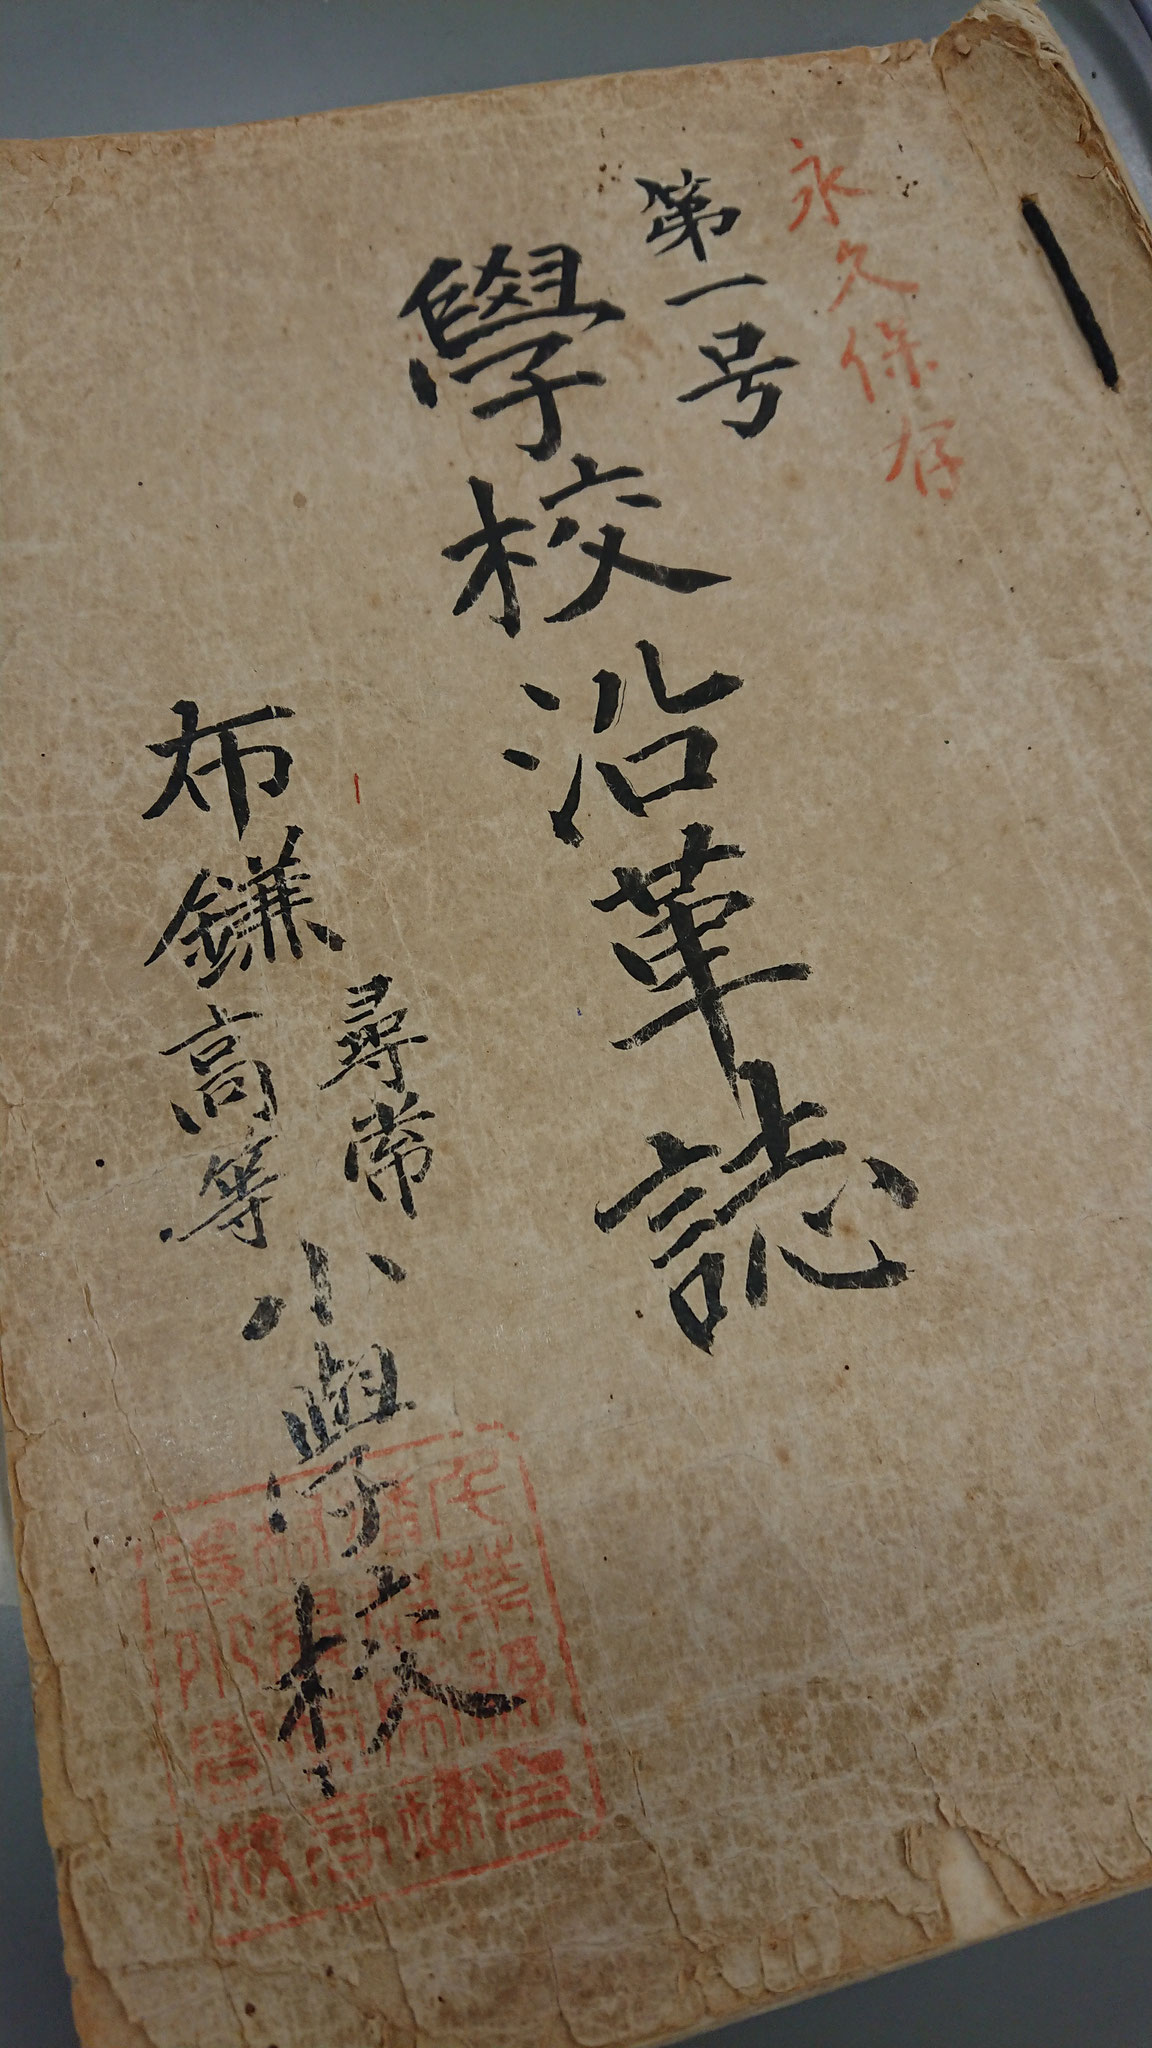 永久保存
第一号
學校沿革誌
尋常
布鎌高等小學校